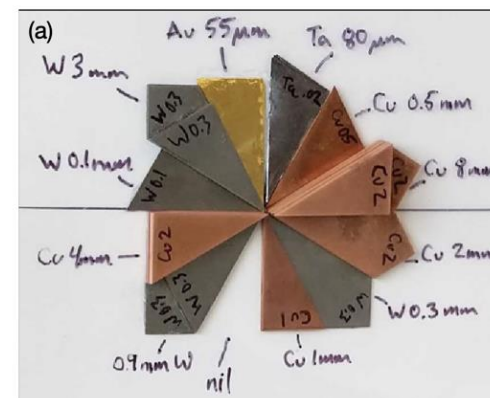 (a)
Au 55µm
Ta 80µm
W 3mm
Cu 0.5mm
W 0.1mm
Cu 8mm
Cu 4mm
Cu 2mm
W 0.3mm
0.9mm W
nil
Cu 1mm
W0.3
W0.3
Ta .02
Cu 05
W0.1
Cu2
Cu2
Cu2
Cu2
W0.3
W0.3
Cu1
W0.3